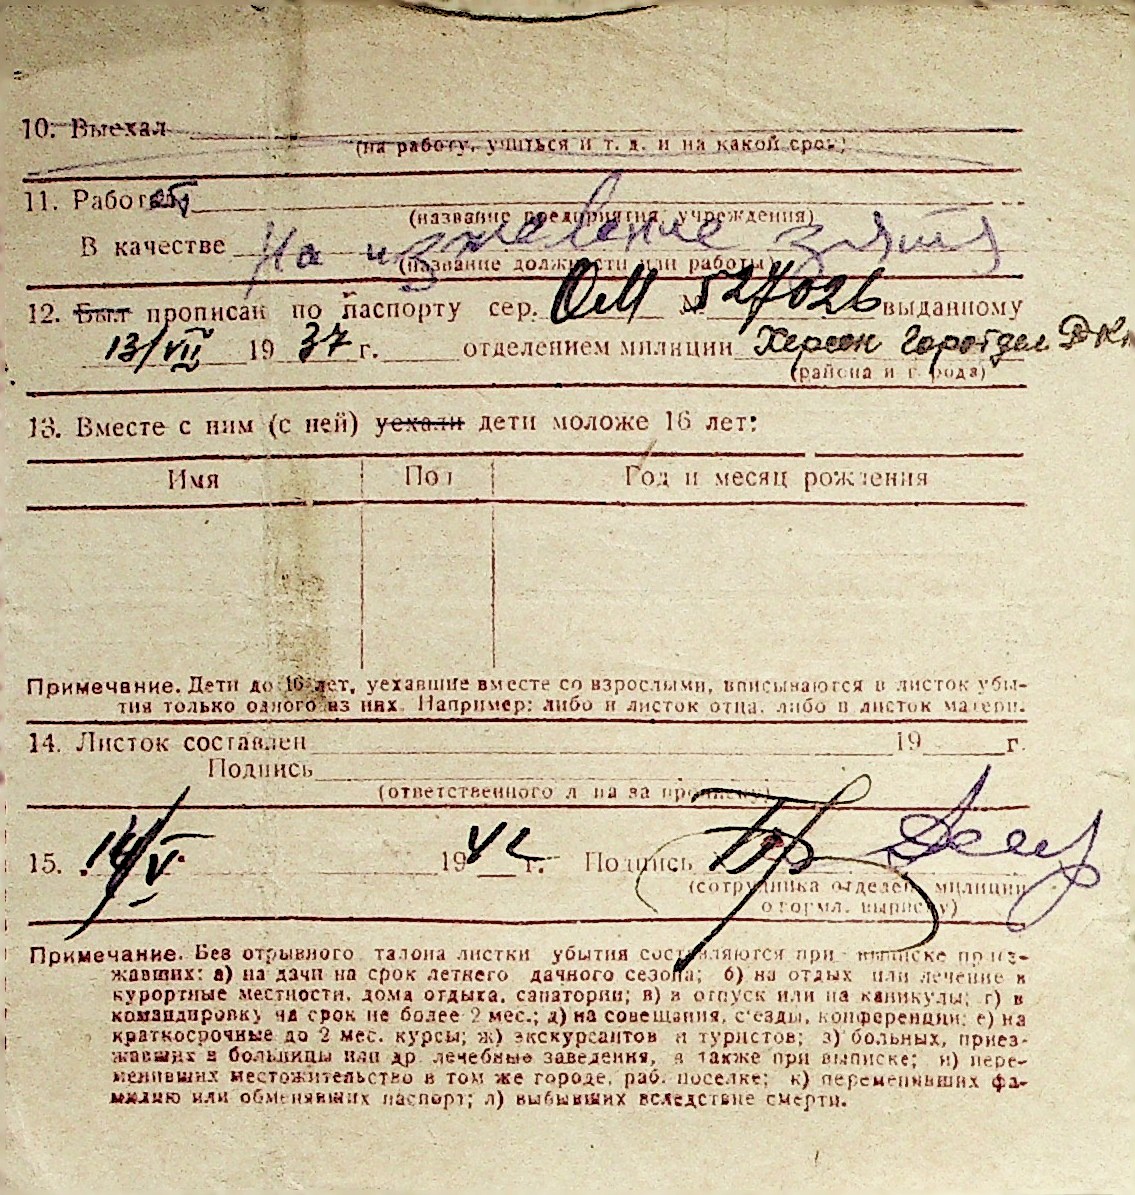 10. Выехал
(на работу, учиться и т. д. и на какой срок)
11. Работает
(название предприятия, учреждения)
В качестве На иждевение зятя
(название должности или работы)
12. Был прописан по паспорту сер. ОМ № 527026 выданному
13/VII 1937 г. отделением милиции Херсон Горотдел
(района и города)
13. Вместе с ним (с ней) уехали дети моложе 16 лет:
Имя Пол Год и месяц рождения
Примечание. Дети до 16 лет, уехавшие вместе со взрослыми, вписываются в листок убы-
тия только одного из них. Например: либо в листок отца, либо в листок матери.
14. Листок составлен 19 г.
Подпись
(ответственного лица за прописку)
15. 14/V 1942 г. Подпись
(сотрудника отделен. милиции
оформл. выписку)
Примечание. Без отрывного талона листки убытия составляются при выписке приез-
жавших: а) на дачи на срок летнего дачного сезона; б) на отдых или лечение в
курортные местности, дома отдыха, санатории; в) в отпуск или на каникулы; г) в
командировку на срок не более 2 мес.; д) на совещания, с'езды, конференции; е) на
краткосрочные до 2 мес. курсы; ж) экскурсантов и туристов; з) больных, приез-
жавших в больницы или др. лечебные заведения, а также при выписке; и) пере-
менивших местожительство в том же городе, раб. поселке; к) переменивших фа-
милию или обменявших паспорт; л) выбывших вследствие смерти.